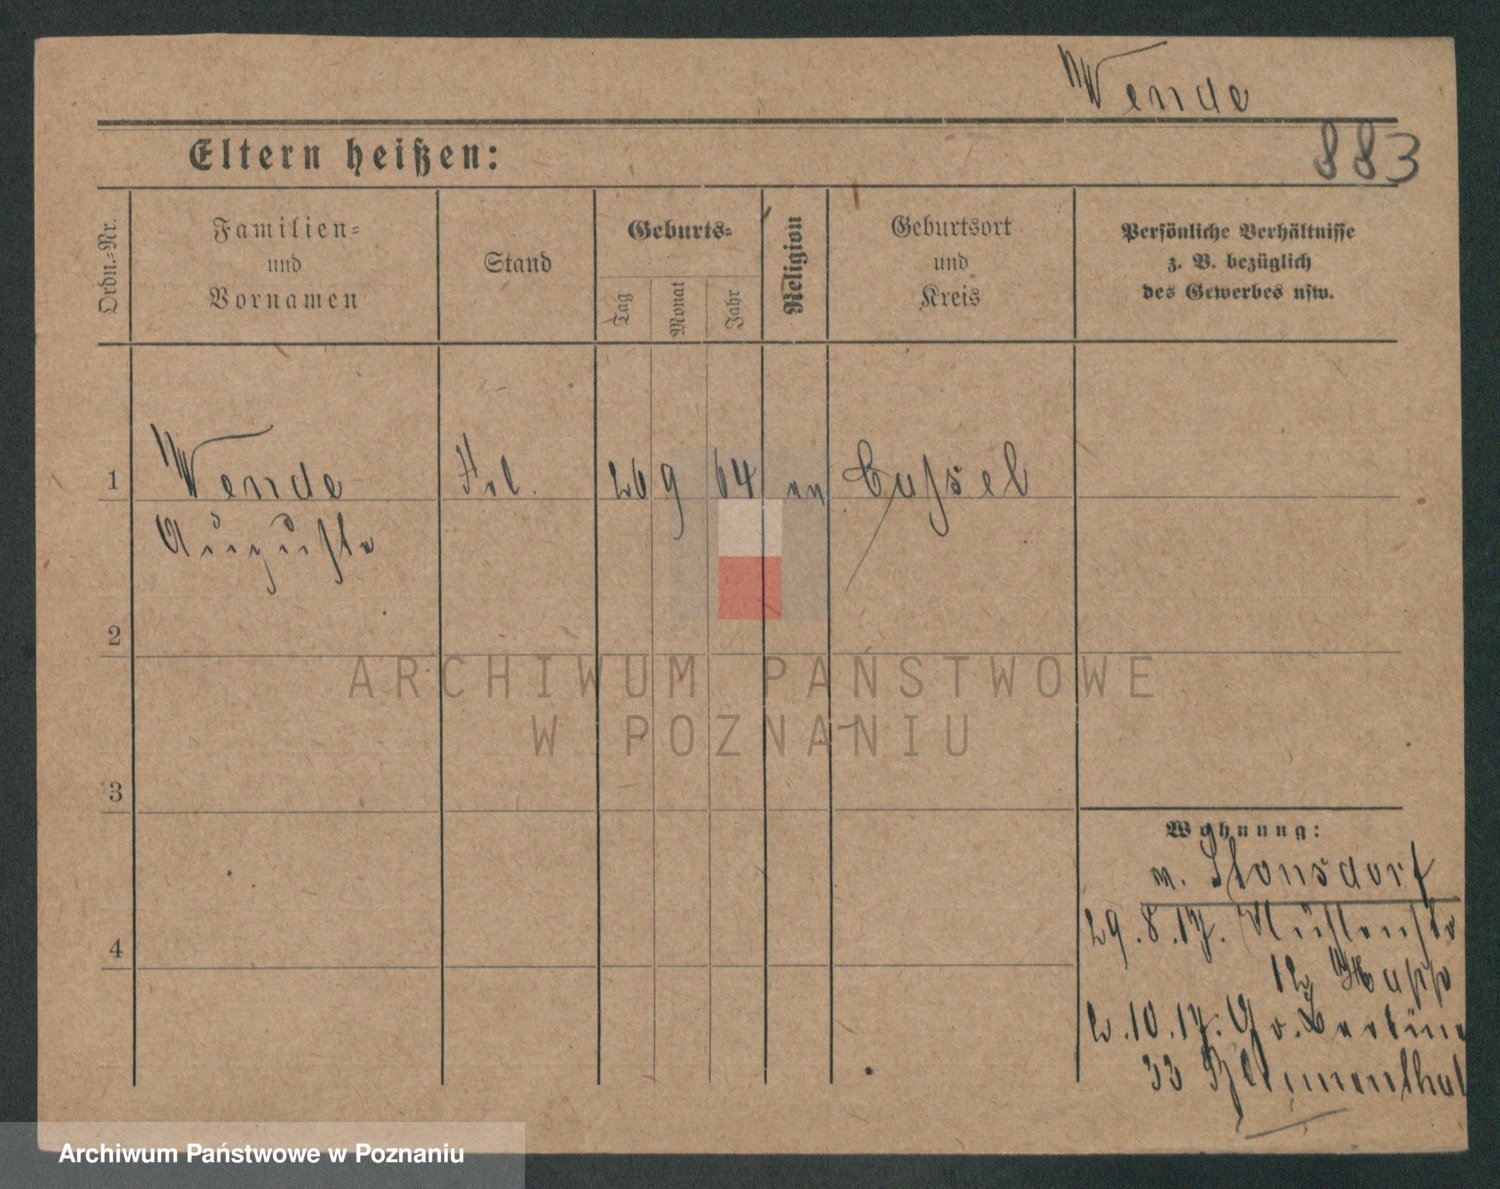 Wende
883
Eltern heißen:
Ordn.-Nr.
Familien-
und
Vornamen
Stand
Geburts-
Tag
Monat
Jahr
Religion
Geburtsort
und
Kreis
Persönliche Verhältnisse
z. B. bezüglich
des Gewerbes usw.
1
Wende
Frl.
26
9
64
ev
Cassel
Auguste
2
3
4
ARCHIWUM PAŃSTWOWE
W POZNANIU
Wohnung:
n. Stonsdorf
29.8.17.
12
2.10.17. Gr.
33 Blumenthal
Archiwum Państwowe w Poznaniu